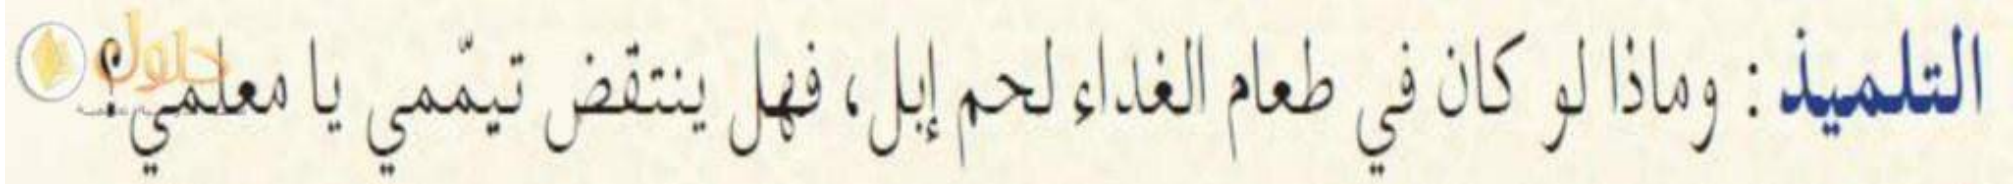 التلميذ : وماذا لو كان في طعام الغداء لحم إبل، فهل ينتقض تيمّمي يا معلمي؟
حلول